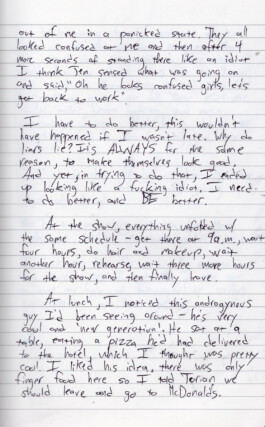 out of me in a panicked state. They all
looked confused at me and then after 4
more seconds of standing there like an idiot
I think Jen sensed what was going on
and said, "Oh he looks confused girls, let's
get back to work".
I have to do better, this wouldn't
have happened if I wasn't late. Why do
liars lie? It's ALWAYS for the same
reason, to make themselves look good.
And yet, in trying to do that, I ended
up looking like a fucking idiot. I need
to do better, and BE better.
At the show, everything unfolded w/
the same schedule - get there at 9a.m., wait
four hours, do hair and makeup, wait
another hour, rehearse, wait three more hours
for the show, and then finally leave.
At lunch, I noticed this androgynous
guy I'd been seeing around - he's very
cool and 'new generation'. He sat at a
table, eating a pizza he'd had delivered
to the hotel, which I thought was pretty
cool. I liked his idea, there was only
finger food here so I told we
should leave and go to McDonalds.